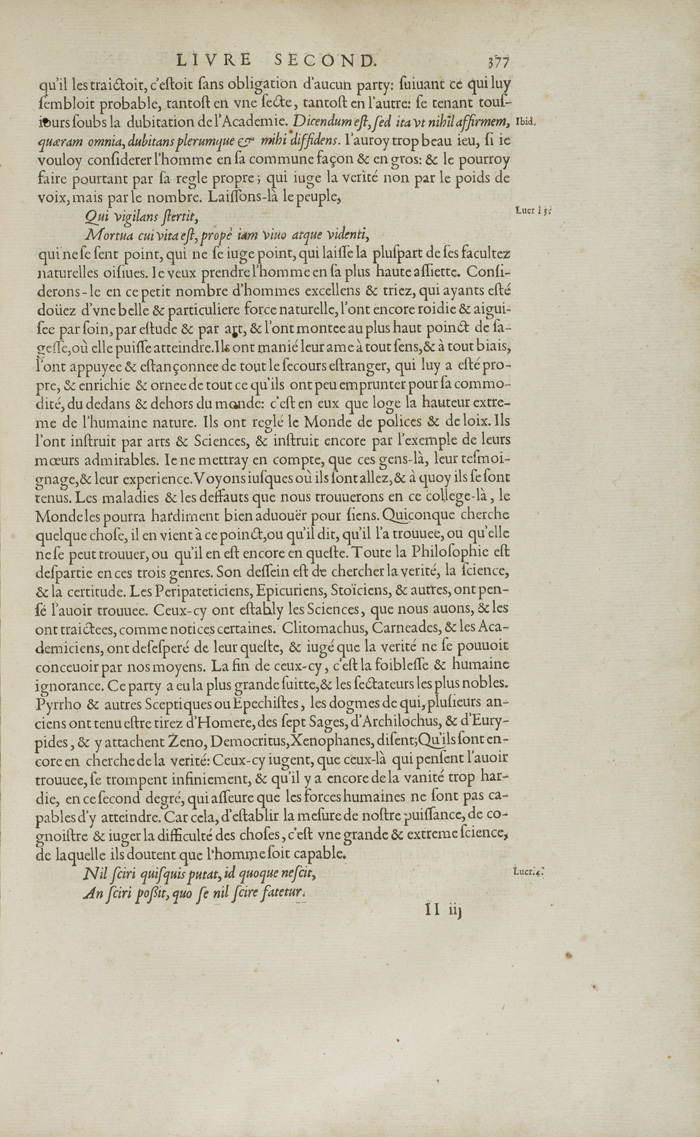 LIVRE SECOND. 377
qu'il les traictoit, c'eſtoit ſans obligation d'aucun party: ſuiuant ce qui luy
ſembloit probable, tantoſt en vne ſecte, tantoſt en l'autre: ſe tenant touſ-
iours ſoubs la dubitation de l'Academie. Dicendum eſt, ſed ita vt nihil affirmem, Ibid.
quæram omnia, dubitans plerumque & mihi diffidens. I'auroy trop beau ieu, ſi ie
vouloy conſiderer l'homme en ſa commune façon & en gros: & le pourroy
faire pourtant par ſa regle propre; qui iuge la verité non par le poids de
voix, mais par le nombre. Laiſſons-là le peuple,
Qui vigilans ſtertit, Lucr l 3:
Mortua cui vita eſt, propè iam viuo atque videnti,
qui ne ſe ſent point, qui ne ſe iuge point, qui laiſſe la pluſpart de ſes facultez
naturelles oiſiues. Ie veux prendre l'homme en ſa plus haute aſſiette. Conſi-
derons-le en ce petit nombre d'hommes excellens & triez, qui ayants eſté
doüez d'vne belle & particuliere force naturelle, l'ont encore roidie & aigui-
ſee par ſoin, par eſtude & par art, & l'ont montee au plus haut poinct de ſa-
geſſe, où elle puiſſe atteindre. Ils ont manié leur ame à tout ſens, & à tout biais,
l'ont appuyee & eſtançonnee de tout le ſecours eſtranger, qui luy a eſté pro-
pre, & enrichie & ornee de tout ce qu'ils ont peu emprunter pour ſa commo-
dité, du dedans & dehors du monde: c'eſt en eux que loge la hauteur extre-
me de l'humaine nature. Ils ont reglé le Monde de polices & de loix. Ils
l'ont inſtruit par arts & Sciences, & inſtruit encore par l'exemple de leurs
mœurs admirables. Ie ne mettray en compte, que ces gens-là, leur teſmoi-
gnage, & leur experience. Voyons iuſques où ils ſont allez, & à quoy ils ſe ſont
tenus. Les maladies & les deffauts que nous trouuerons en ce college-là, le
Monde les pourra hardiment bien aduouër pour ſiens. Quiconque cherche
quelque choſe, il en vient à ce poinct, ou qu'il dit, qu'il l'a trouuee, ou qu'elle
ne ſe peut trouuer, ou qu'il en eſt encore en queſte. Toute la Philoſophie eſt
deſpartie en ces trois genres. Son deſſein eſt de chercher la verité, la ſcience,
& la certitude. Les Peripateticiens, Epicuriens, Stoïciens, & autres, ont pen-
ſé l'auoir trouuee. Ceux-cy ont eſtably les Sciences, que nous auons, & les
ont traictees, comme notices certaines. Clitomachus, Carneades, & les Aca-
demiciens, ont deſeſperé de leur queſte, & iugé que la verité ne ſe pouuoit
conceuoir par nos moyens. La fin de ceux-cy, c'eſt la foibleſſe & humaine
ignorance. Ce party a eu la plus grande ſuitte, & les ſectateurs les plus nobles.
Pyrrho & autres Sceptiques ou Epechiſtes, les dogmes de qui, pluſieurs an-
ciens ont tenu eſtre tirez d'Homere, des ſept Sages, d'Archilochus, & d'Eury-
pides, & y attachent Zeno, Democritus, Xenophanes, diſent; Qu'ils ſont en-
core en cherche de la verité: Ceux-cy iugent, que ceux-là qui penſent l'auoir
trouuee, ſe trompent infiniement, & qu'il y a encore de la vanité trop har-
die, en ce ſecond degré, qui aſſeure que les forces humaines ne ſont pas ca-
pables d'y atteindre. Car cela, d'eſtablir la meſure de noſtre puiſſance, de co-
gnoiſtre & iuger la difficulté des choſes, c'eſt vne grande & extreme ſcience,
de laquelle ils doutent que l'homme ſoit capable.
Nil ſciri quiſquis putat, id quoque neſcit, Lucr. 4.
An ſciri poßit, quo ſe nil ſcire fatetur.
II iij